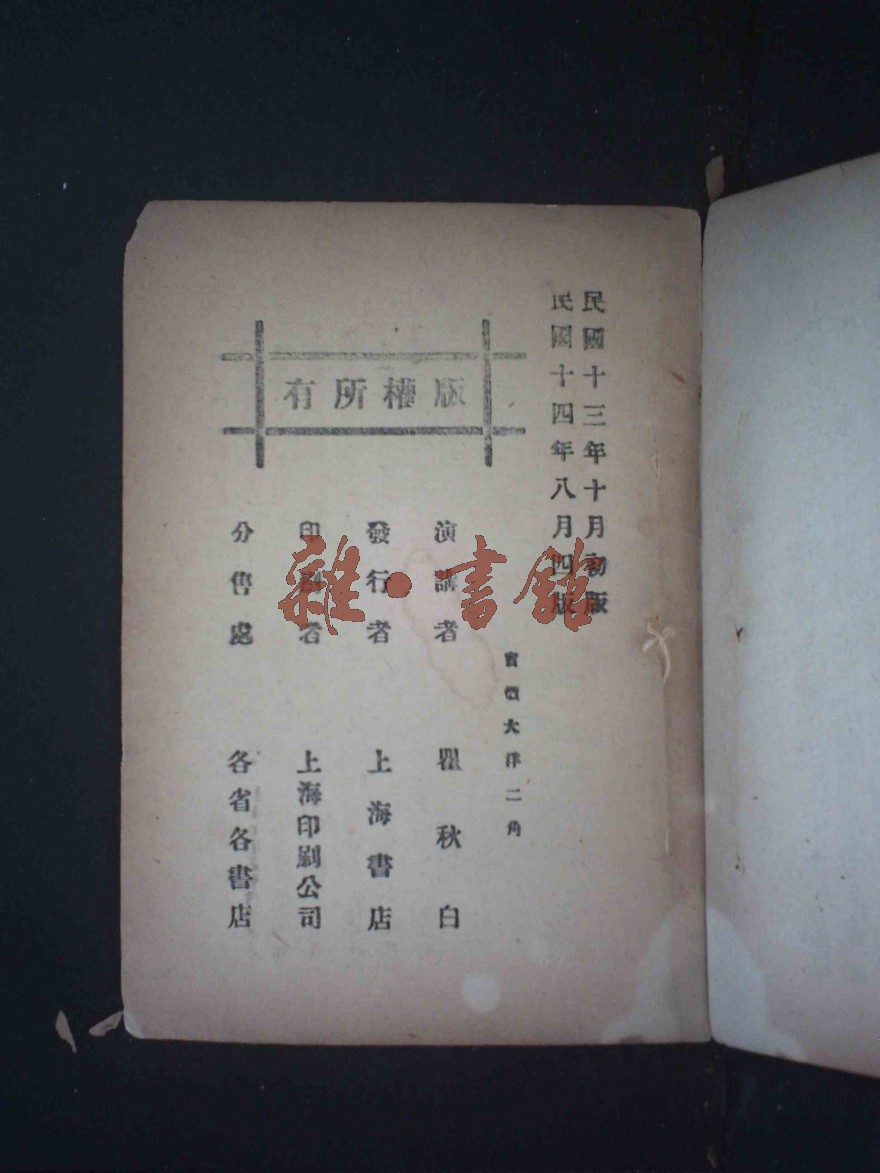 民國十三年十月初版
民國十四年八月四版
實價大洋二角
演講者 瞿秋白
發行者 上海書店
印刷者 上海印刷公司
分售處 各省各書店
版權所有
雜·書館